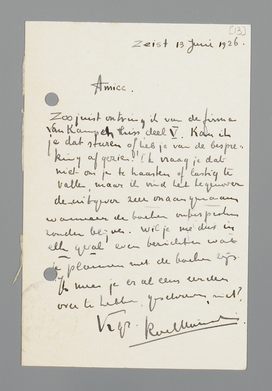 [13]
Zeist 13 Juni 1926.
Amice.
Zoo juist ontving ik van de firma
van Kampen Huis, deel V. Kan ik
je dat sturen of heb je van de bespre-
king afgezien? Ik vraag je dat
niet om je te haasten of lastig te
vallen, maar ik vind het tegenover
de uitgever zeer onaangenaam
wanneer de boeken onbesproken
zouden blijven. Wil je me dus in
elk geval even berichten wat
je plannen met de boeken zijn.
Ik meen je er al eens eerder
over te hebben geschreven, niet?
Vrgr.